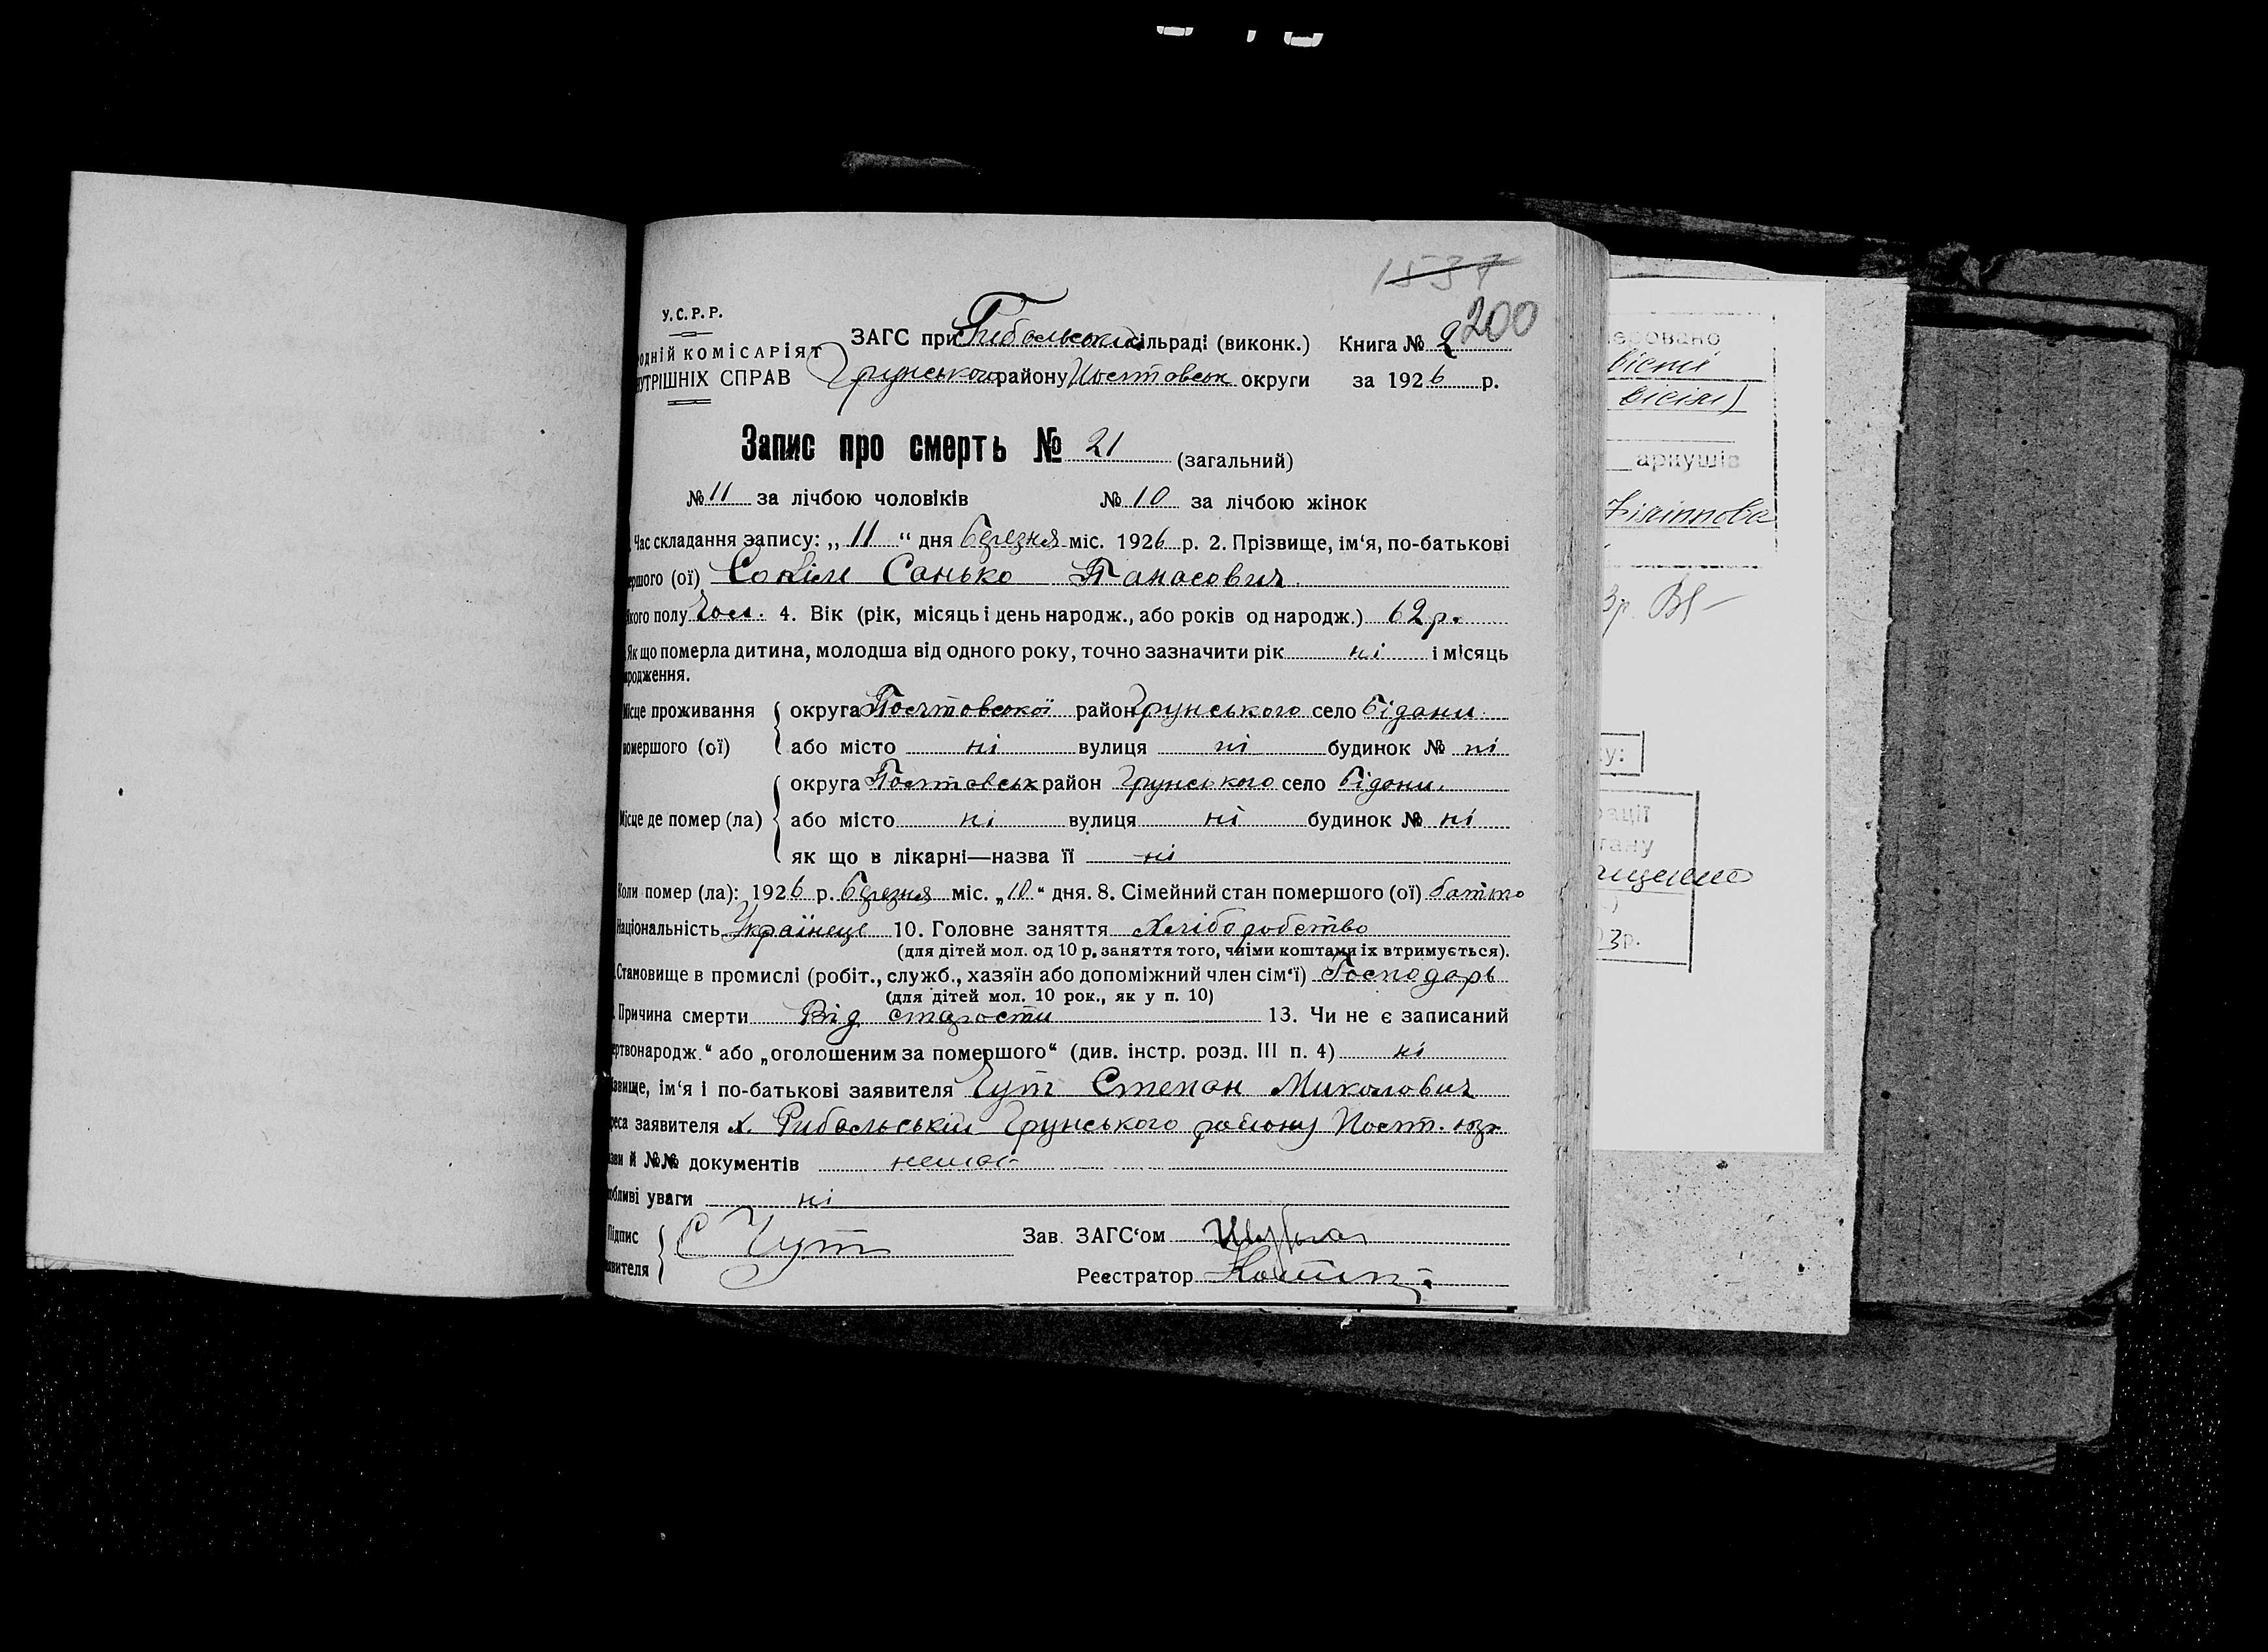 1537
200
У.С.Р.Р.
ЗАГС при Рибальській сільраді (виконк.) Книга № 2
одній КОМІСАРІЯТ
УТРІШНІХ СПРАВ Грунського району округи за 1926 р.
Запис про смерть № 21 (загальний)
№ 11 за лічбою чоловіків № 10 за лічбою жінок
Час складання запису: „ 11 “ дня березня міс. 1926 р. 2. Прізвище, ім‘я, по-батькові
ершого (ої) Санько Панасович
кого полу чол. 4. Вік (рік, місяць і день народж., або років од народж.) 62 р.
Як що померла дитина, молодша від одного року, точно зазначити рік ні і місяць
родження.
Місце проживання округа район Грунського село Бідани
помершого (ої) або місто ні вулиця ні будинок № ні
округа район Грунського село Бідани
Місце де помер (ла) або місто ні вулиця ні будинок № ні
як що в лікарні—назва її ні
Коли помер (ла): 1926 р. березня міс. „10“ дня. 8. Сімейний стан помершого (ої) батько
Національність Українець 10. Головне заняття Хліборобство
(для дітей мол. од 10 р. заняття того, чиїми коштами їх втримується).
Становище в промислі (робіт., служб., хазяїн або допоміжний член сім‘ї) Господарь
(для дітей мол. 10 рок., як у п. 10)
Причина смерти Від старости 13. Чи не є записаний
ертвонародж.“ або „оголошеним за помершого“ (див. інстр. розд. III п. 4) ні
звище, ім‘я і по-батькові заявителя Чут Степан Миколович
реса заявителя х. Рибальський Грунського району
зви й №№ документів немає
обливі уваги ні
Підпис С Чут Зав. ЗАГС‘ом
явителя Реєстратор
аркушів